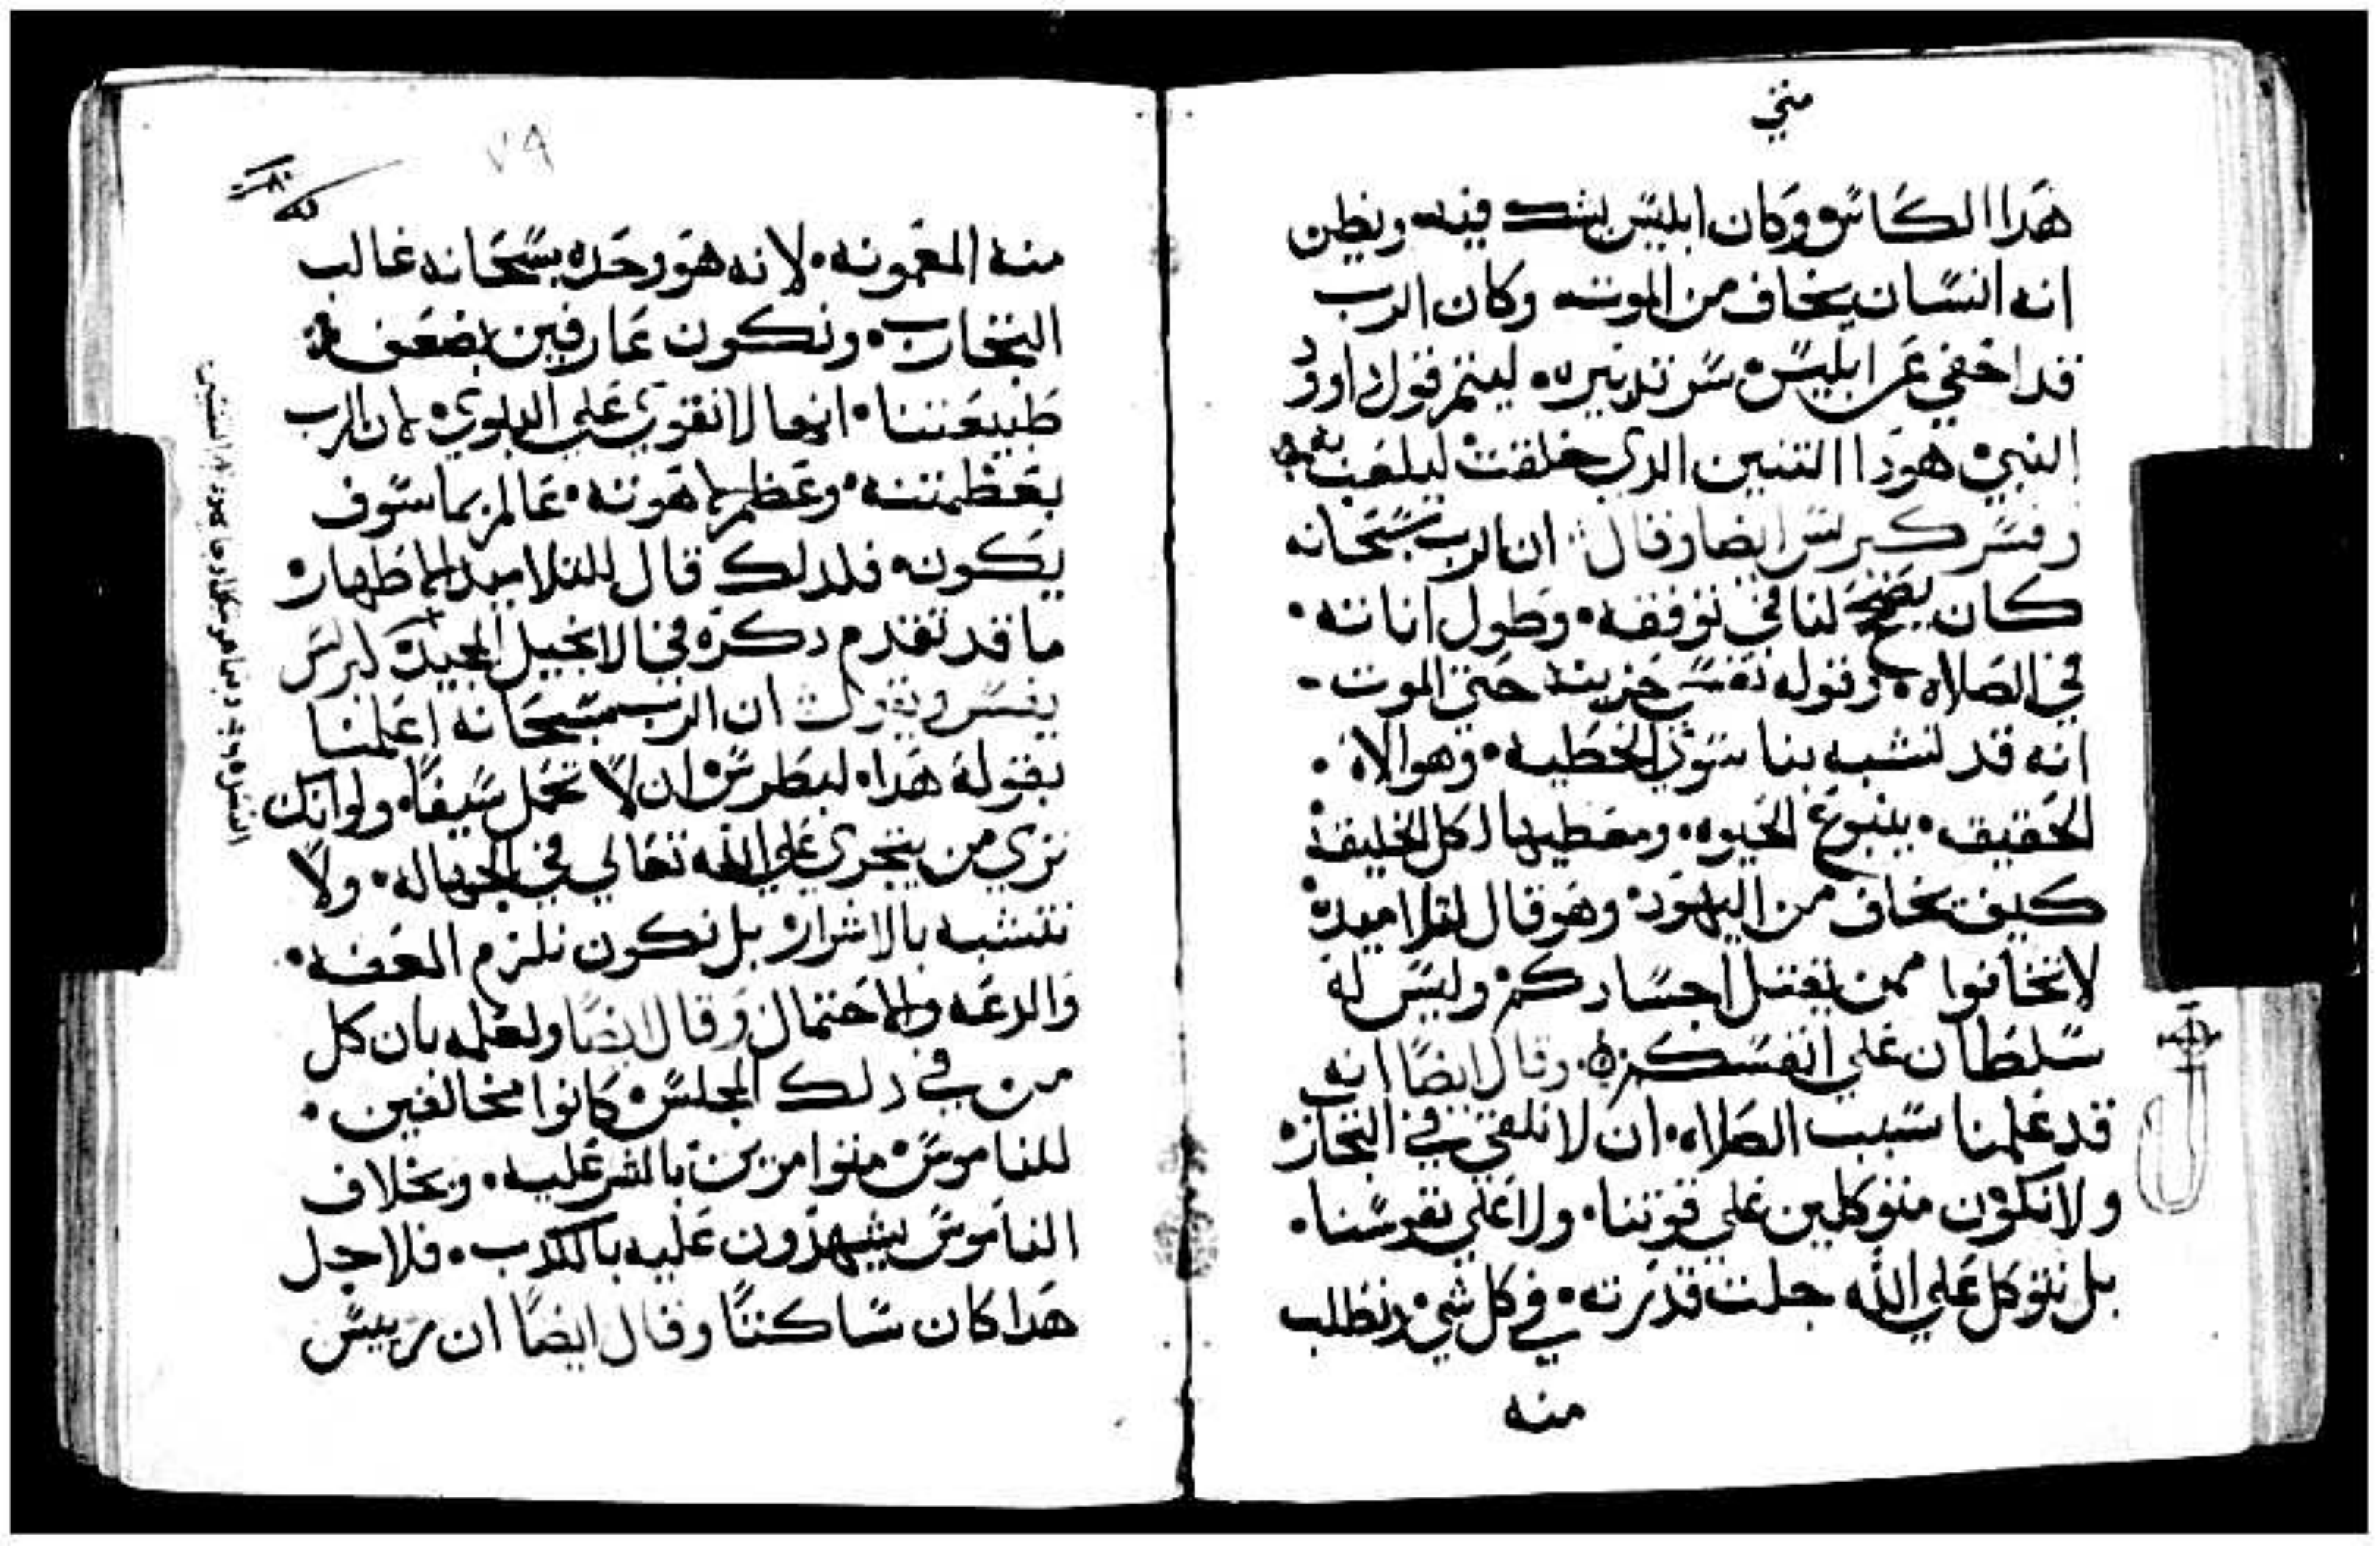 متي
هدا الكاس وكان ابليس يشك فيه ويظن
انه انسان يخاف من الموت وكان الرب
قد اخفي عن ابليس سر تدبيره ليتم قول داوود
النبي هودا التنين الدي خلقت ليلعب به
وفسر كيرلس ايضا وقال ان الرب سبحانه
كان لنا في توقفه وطول اناته
في الصلاه وقوله نفسي حزينه حتي الموت
انه قد تشبه بنا سوي الخطيه وهو الاه
الحقيقه ينبوع الحيوه ومعطيها لكل الخليقه
كيف يخاف من اليهود وهو قال لتلاميده
لا تخافوا ممن يقتل اجسادكم وليس له
سلطان علي انفسكم وقال ايضا انه
قد علمنا سبب الصلاه ان لا نلقي في التجارب
ولا نكون متوكلين علي قوتنا ولا علي نفوسنا
بل نتوكل علي الله جلت قدرته في كل شي ونطلب
منه
٧٩
منه المعونه لانه هو وحده سبحانه غالب
التجارب ونكون عارفين بضعف
طبيعتنا انها لا تقوي علي البلوي لان الرب
بعظمته وعظم لاهوته عالم بما سوف
يكون فلدلك قال للتلاميد لاظهار
ما قد تقدم دكره في الانجيل المجيد كيرلس
يفسر ويقول ان الرب سبحانه اعلمنا
بقوله هدا لبطرس ان لا تحمل سيفا ولو انك
تري من يتجري علي الله تعالي في الجهاله ولا
نتشبه بالاشرار بل نكون نلزم العفه
والدعه والاحتمال وقال ايضا ولعلمه بان كل
من في دلك المجلس كانوا مخالفين
للناموس متوامرين بالشر عليه وبخلاف
الناموس يشهدون عليه بالكدب فلاجل
هدا كان ساكتا وقال ايضا ان رييس